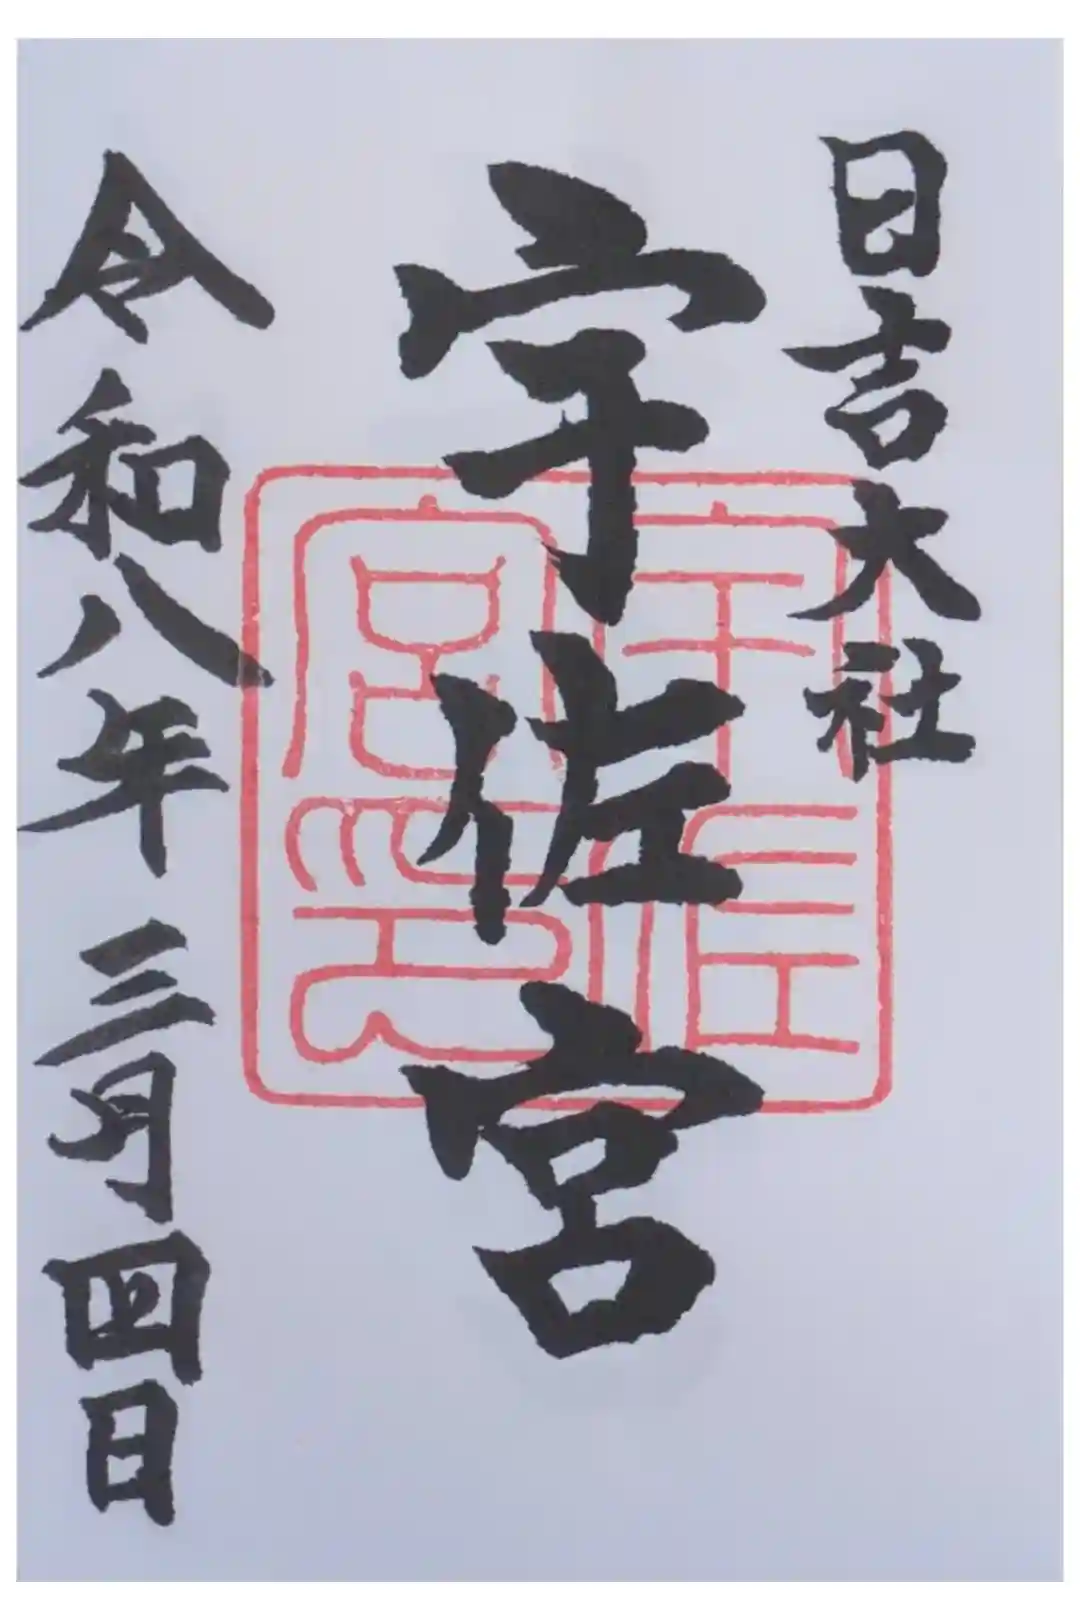 日吉大社
宇佐宮
宇佐
宮印
令和八年三月四日